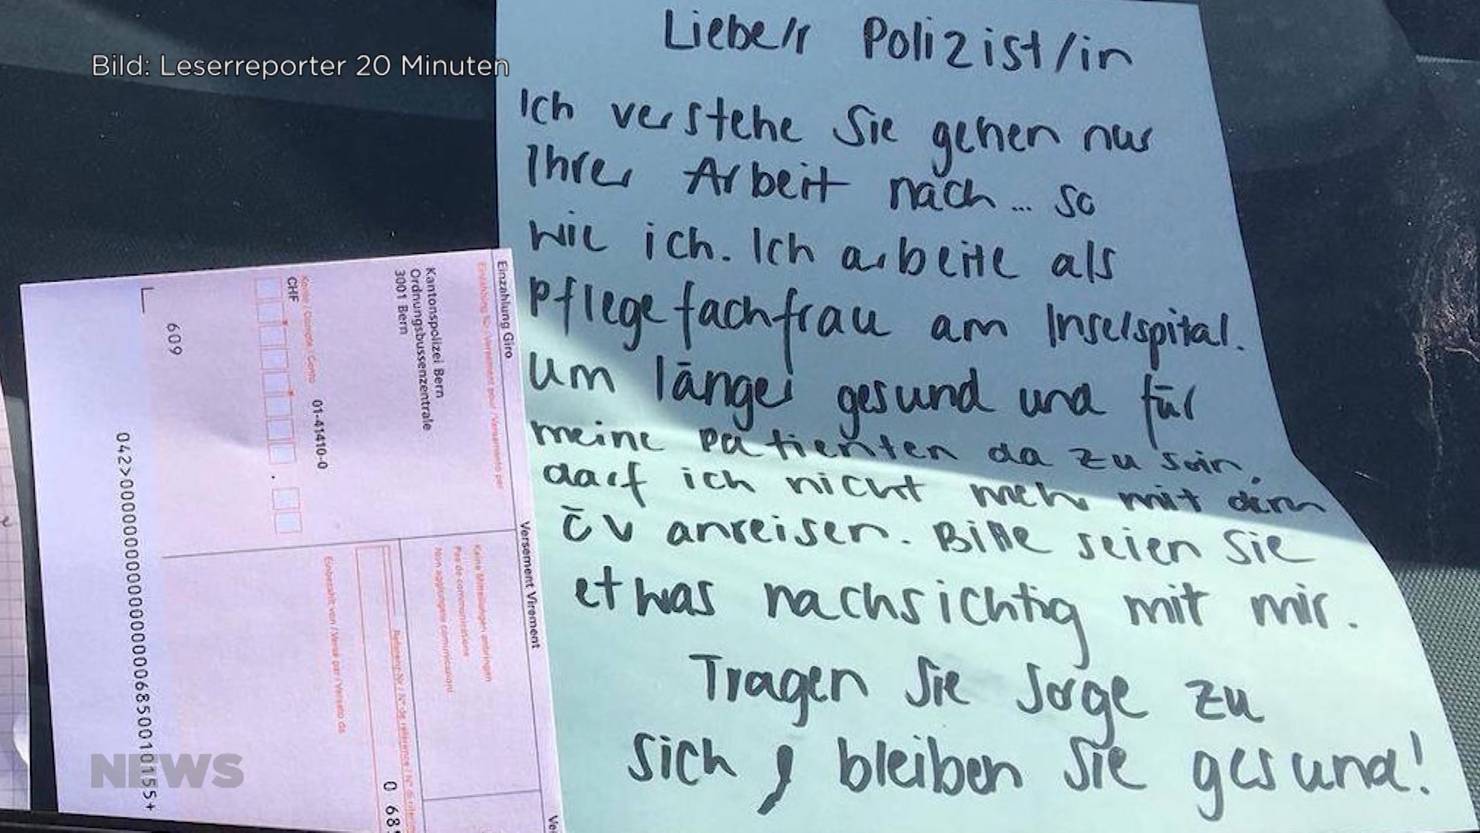 Bild: Leserreporter 20 Minuten
Liebe/r Polizist/in
Ich verstehe Sie gehen nur
Ihrer Arbeit nach... so
wie ich. Ich arbeite als
Pflegefachfrau am Inselspital.
Um länger gesund und für
meine Patienten da zu sein,
darf ich nicht mehr mit dem
ÖV anreisen. Bitte seien Sie
etwas nachsichtig mit mir.
Tragen Sie Sorge zu
sich, bleiben Sie gesund!
Einzahlung Giro
Versement Virement
Einzahlung für / Versement pour / Versamento per
Kantonspolizei Bern
Ordnungsbussenzentrale
3001 Bern
Konto / Compte / Conto 01-41410-0
CHF
609
Keine Mitteilungen anbringen
Pas de communications
Non aggiungete comunicazioni
Referenz-Nr./N° de référence/N° di
Einbezahlt von / Versé par / Versato da
NEWS